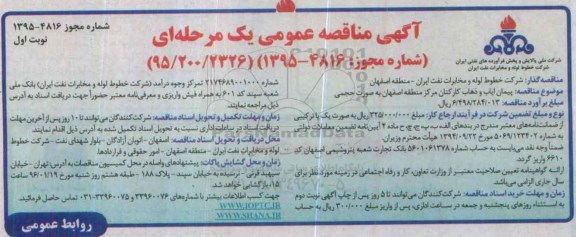 آگهی مناقصه عمومی یک مرحله‌ای
(شماره مجوز: ۴۸۱۶-۱۳۹۵) (۹۵/۲۰۰/۲۳۲۶)
شماره مجوز ۴۸۱۶-۱۳۹۵
نوبت اول
شرکت ملی پالایش و پخش فرآورده های نفتی ایران
شرکت خطوط لوله و مخابرات نفت ایران
مناقصه گذار: شرکت خطوط لوله و مخابرات نفت ایران - منطقه اصفهان
موضوع مناقصه: پیمان ایاب و ذهاب کارکنان مرکز منطقه اصفهان به صورت حجمی
مبلغ برآورد مناقصه: ۶/۴۹۸/۲۸۴/۰۱۳ ریال
نوع و مبلغ تضمین شرکت در فرآیند ارجاع کار: مبلغ ۳۲۵/۰۰۰/۰۰۰ ریال به صورت یک یا ترکیبی
از ضمانت‌های معتبر مندرج در بندهای الف ب پ ج چ ح ماده ۴ آیین نامه تضمین معاملات دولتی
هیأت محترم وزیران
ضمناً وجه نقد می‌بایست به حساب شماره ۵۶۰۱۰۶۱۳۷۸ بانک تجارت شعبه پتروشیمی اصفهان کد
۶۶۱۰ واریز گردد
ارائه گواهینامه تعیین صلاحیت معتبر از وزارت تعاون، کار و رفاه اجتماعی در زمینه مورد نظر برای
سال جاری الزامی می‌باشد.
زمان و مهلت خرید اسناد مناقصه: شرکت کنندگان می‌توانند تا ۵ روز پس از چاپ آگهی نوبت دوم
به استثناء روزهای پنجشنبه و جمعه در ساعات اداری، پس از واریز مبلغ ۳۰۰/۰۰۰ ریال به حساب
شماره ۲۱۷۴۶۸۹۰۰۱۰۰۰ تمرکز وجوه درآمد (شرکت خطوط لوله و مخابرات نفت ایران) بانک ملی
شعبه سپند کد ۶۰۱ به همراه فیش واریزی و معرفی‌نامه معتبر حضوراً جهت دریافت اسناد به آدرس
ذیل مراجعه نمایند.
زمان و مهلت تکمیل و تحویل اسناد مناقصه: شرکت کنندگان می‌توانند تا ۱۰ روز پس از آخرین مهلت
دریافت اسناد در ساعات اداری نسبت به تحویل اسناد تکمیل شده به آدرس ذیل اقدام نمایند.
محل دریافت و تحویل اسناد مناقصه: اصفهان - اتوبان آزادگان - بلوار شهدای نفت - شرکت خطوط
لوله و مخابرات نفت ایران - منطقه اصفهان - امور حقوقی و قراردادها
زمان و محل گشایش پاکات: پیشنهادهای واصله در محل کمیسیون مناقصات به آدرس تهران - خیابان
سپهبد قرنی - نرسیده به خیابان سپند - پلاک ۱۸۸ - طبقه ششم مورخ ۹۶/۰۱/۱۹ روز شنبه ساعت
۱۵ بازگشایی خواهد شد.
جهت کسب اطلاعات بیشتر با شماره‌های ۳۳۹۶۰۰۷۶ و ۳۳۹۶۰۰۷۵-۰۳۱ تماس حاصل فرمائید.
WWW.IOPTC.IR
WWW.SHANA.IR
روابط عمومی